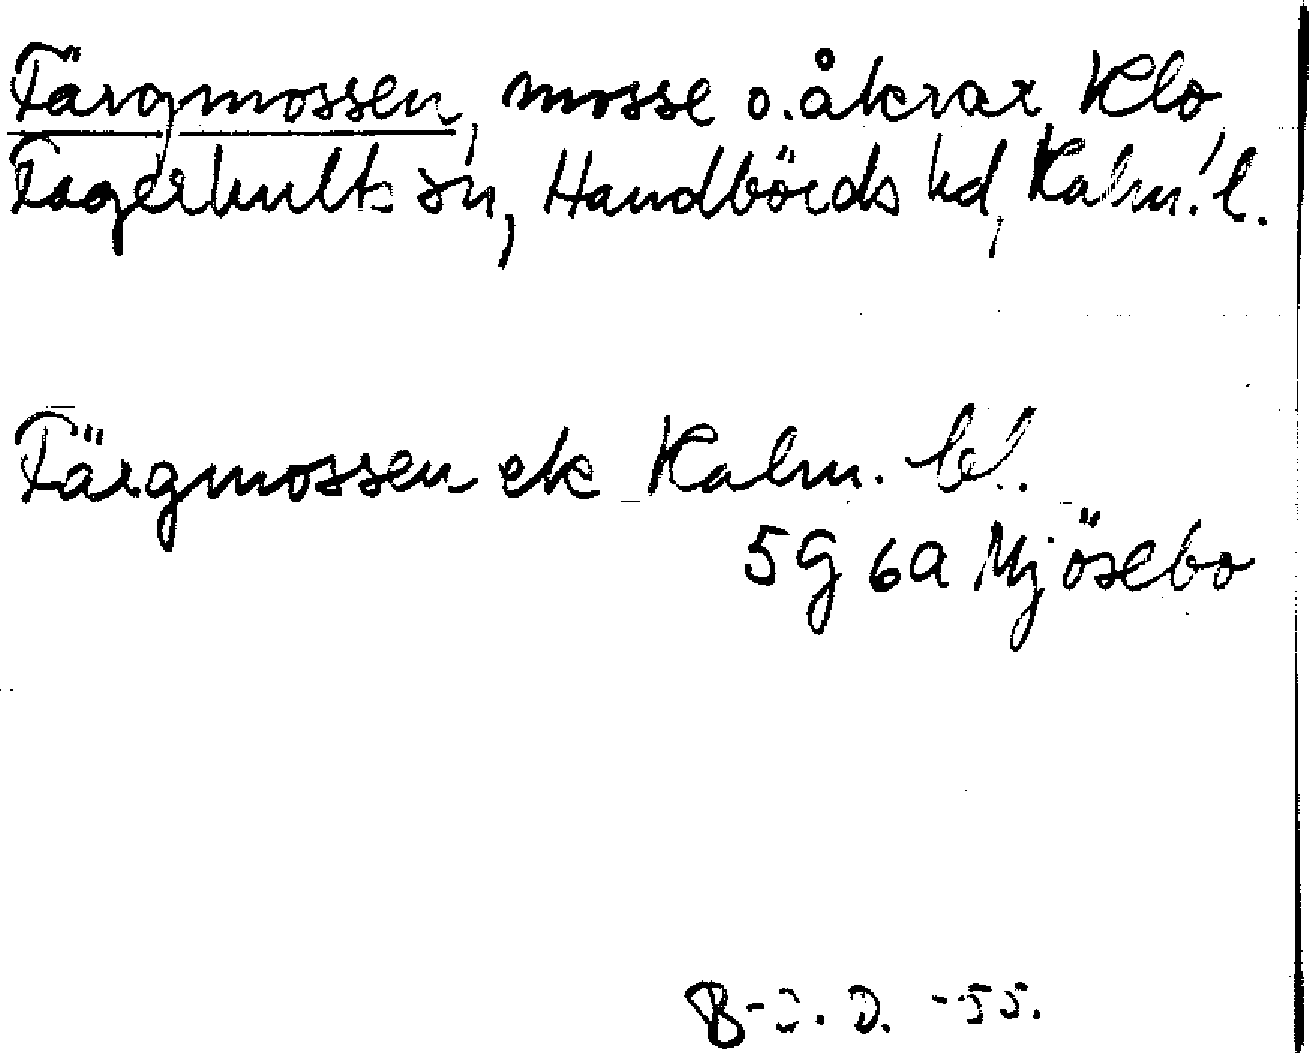 Färgmossen, mosse o. åkrar Klo,
Fagerhults sn, Handbörds hd, Kalm. l.
Färgmossen ek Kalm. l.
5G 6a Mjösebo
B-J. D. -55.